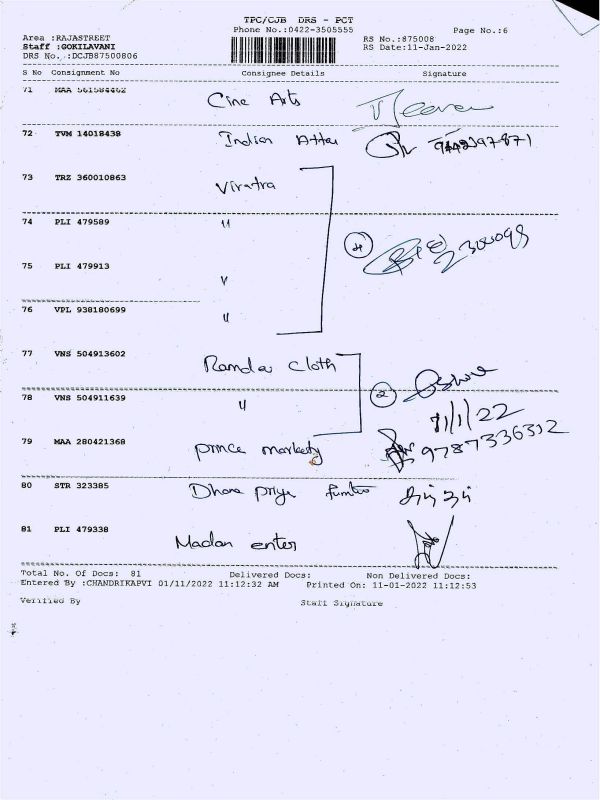 TPC/CJB DRS - PCT
Phone No.:0422-3505555 Page No.:6
Area :RAJASTREET RS No.:875008
Staff :GOKILAVANI RS Date:11-Jan-2022
DRS No. :DCJB87500806
S No Consignment No Consignee Details Signature
71 MAA 561584462 Cine Arts
72 TVM 14018438 Indian
73 TRZ 360010863
74 PLI 479589 "
4
75 PLI 479913 "
76 VPL 938180699 "
77 VNS 504913602 Cloth
2
78 VNS 504911639 "
11/1/22
79 MAA 280421368 prince 9787336312
80 STR 323385 Dhana priya
81 PLI 479338 Madan enter
Total No. Of Docs: 81 Delivered Docs: Non Delivered Docs:
Entered By :CHANDRIKAPVI 01/11/2022 11:12:32 AM Printed On: 11-01-2022 11:12:53
Verified By Staff Signature